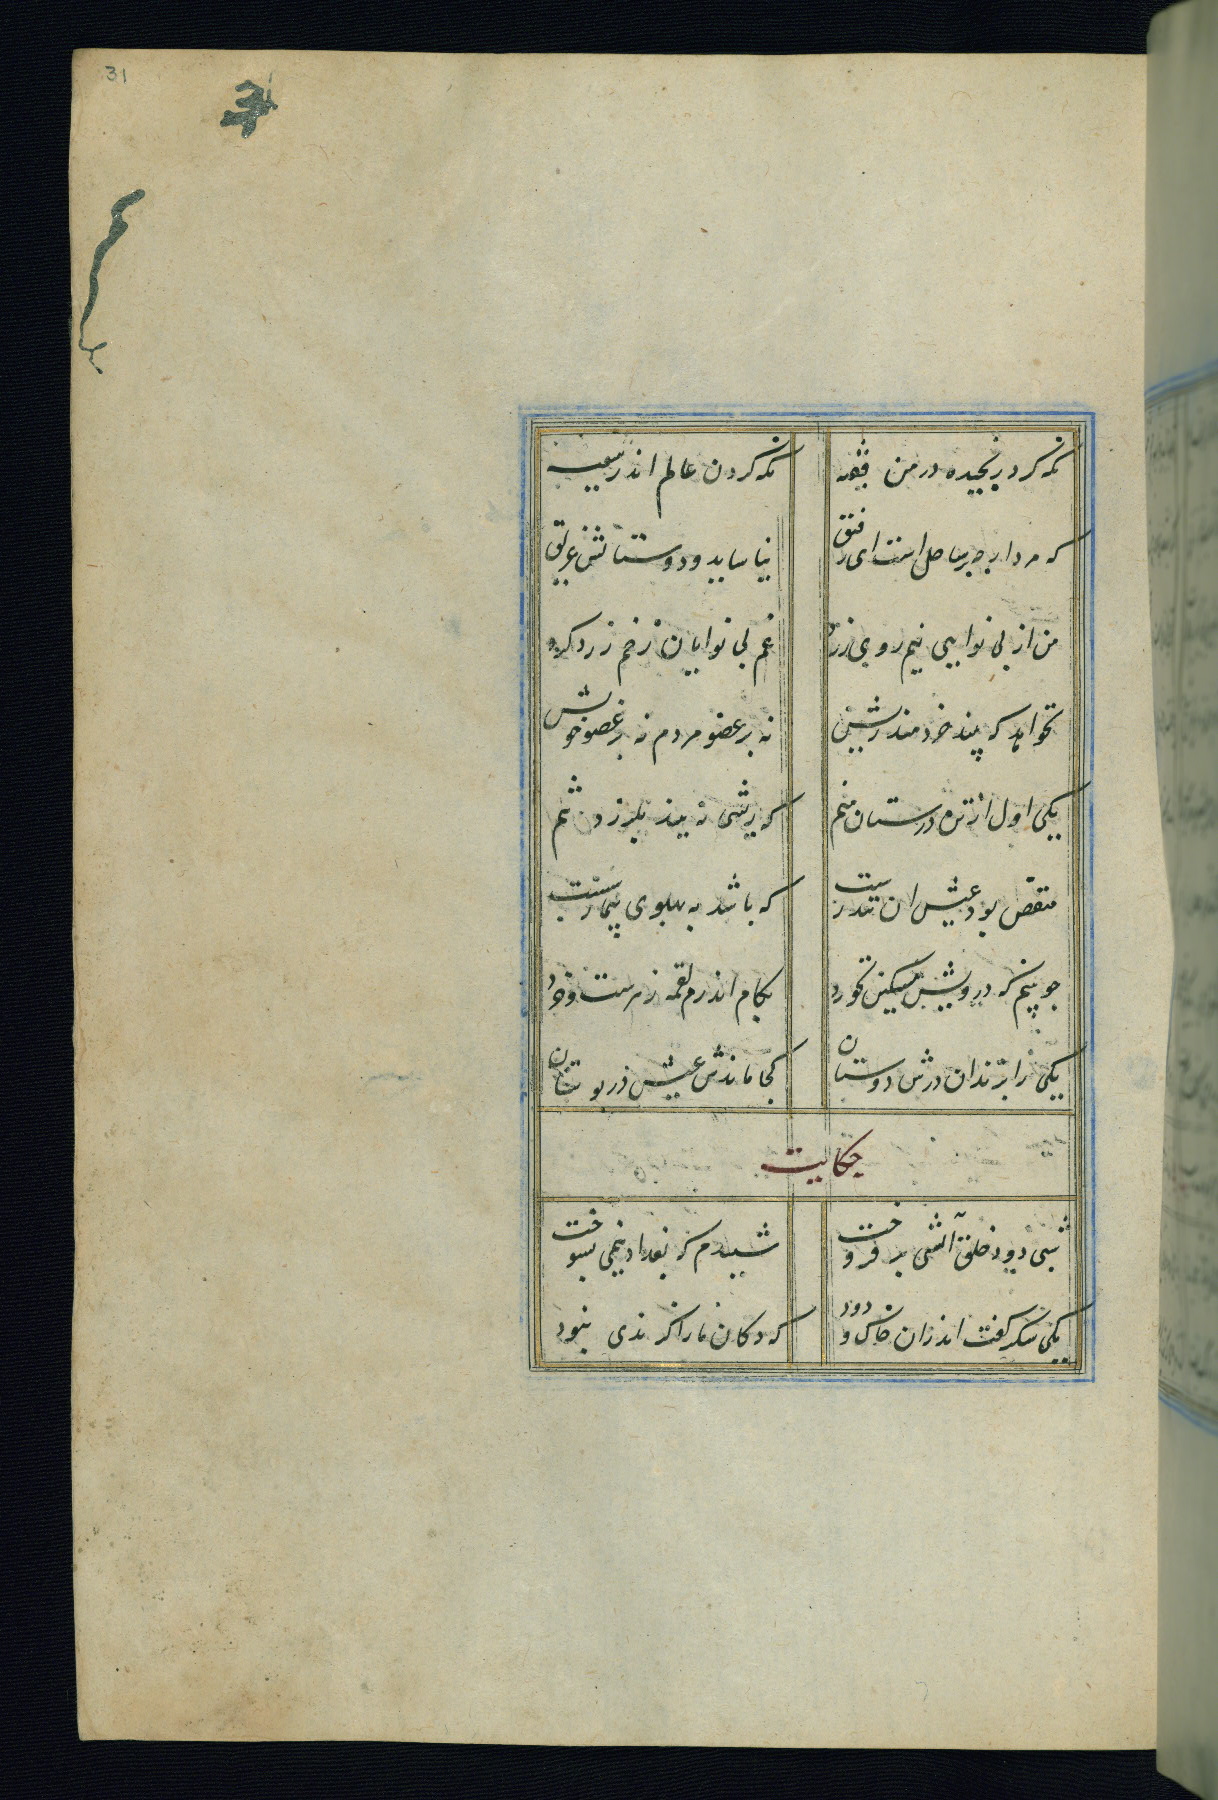 31
نگه کرد رنجیده در من فقیه نگه کردن عالم اندر سفیه
که مرد ار چه بر ساحل است ای رفیق نیاساید و دوستانش غریق
من از بی نوایی نیم روی زرد غم بی نوایان رخم زرد کرد
نخواهد که بیند خردمند ریش نه بر عضو مردم نه بر عضو خویش
یکی اول از تن درستان منم که ریشی نه بیند بلرزد تنم
منغص بود عیش ان تندرست که باشد به پهلوی بیمار سست
چو بینم که درویش مسکین نخورد بکام اندرم لقمه زهرست و درد
یکی را بزندان درش دوستان کجا ماندش عیش در بوستان
حکایت
شبی دود خلق آتشی بر فروخت شنیدم که بغداد نیمی بسوخت
یکی شکر گفت اندران خاک و دود که دکان ما را گزندی نبود